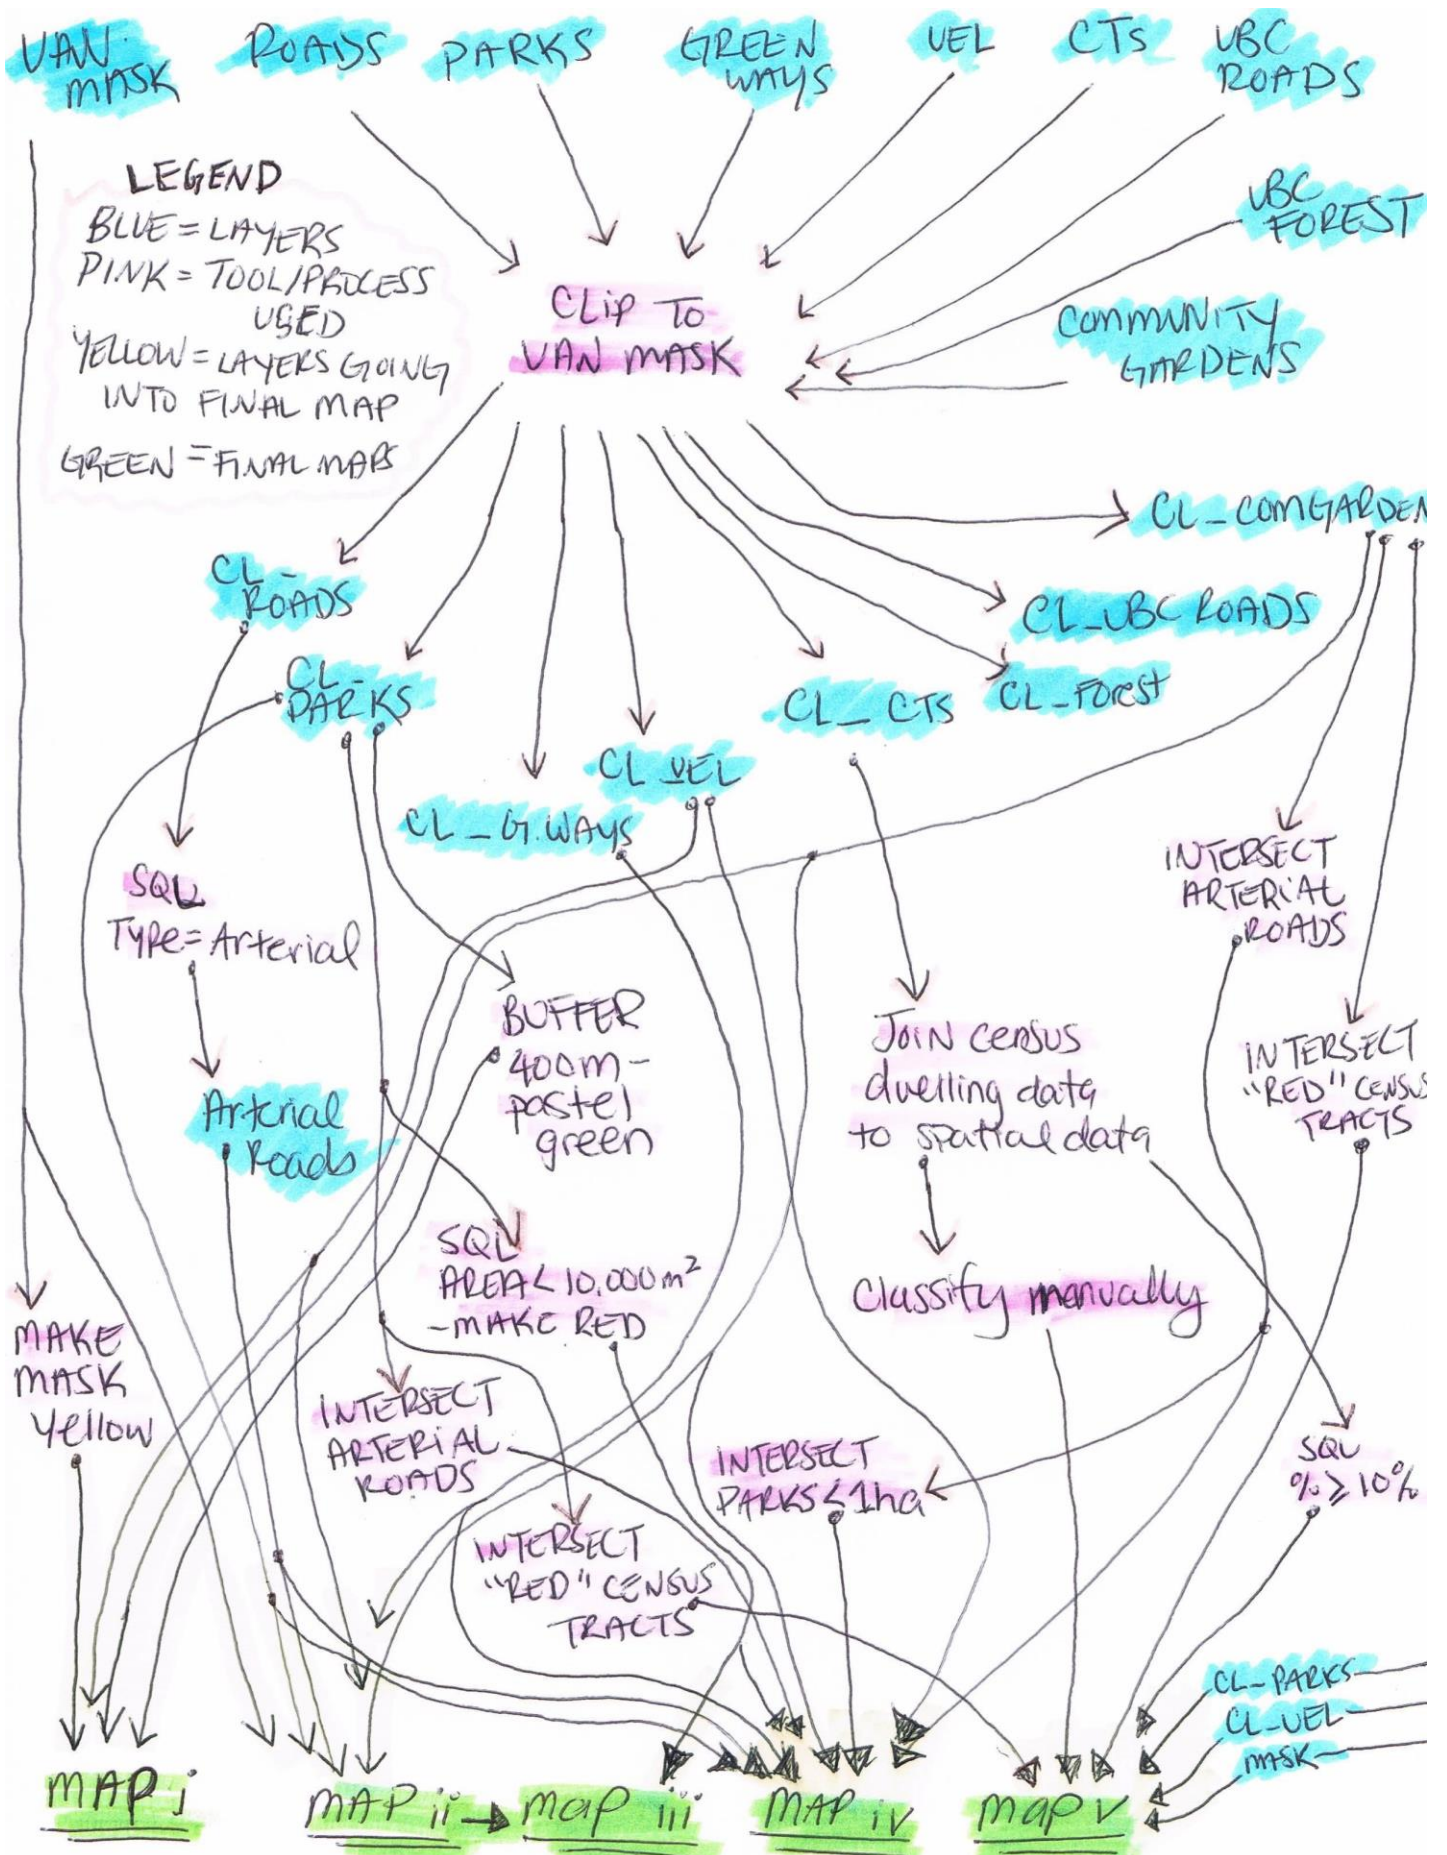 VAN.
MASK
ROADS
PARKS
GREEN
WAYS
UEL
CTs
UBC
ROADS
LEGEND
BLUE = LAYERS
PINK = TOOL/PROCESS
USED
YELLOW = LAYERS GOING
INTO FINAL MAP
GREEN = FINAL MAPS
UBC
FOREST
CLIP TO
VAN MASK
COMMUNITY
GARDENS
CL_COMGARDEN
CL_
ROADS
CL_UBC ROADS
CL_
PARKS
CL_CTS
CL_Forest
CL_UEL
CL_G.WAYS
SQL
TYPE=Arterial
INTERSECT
ARTERIAL
ROADS
BUFFER
400m-
pastel
green
JOIN census
dwelling data
to spatial data
INTERSECT
"RED" CENSUS
TRACTS
Arterial
Roads
SQL
AREA < 10,000m²
-MAKE RED
Classify manually
MAKE
MASK
Yellow
INTERSECT
ARTERIAL
ROADS
INTERSECT
PARKS<1ha
SQL
%≥10%
INTERSECT
"RED" CENSUS
TRACTS
CL_PARKS
CL_UEL
MASK
MAP i
MAP ii
map iii
MAP iv
map v